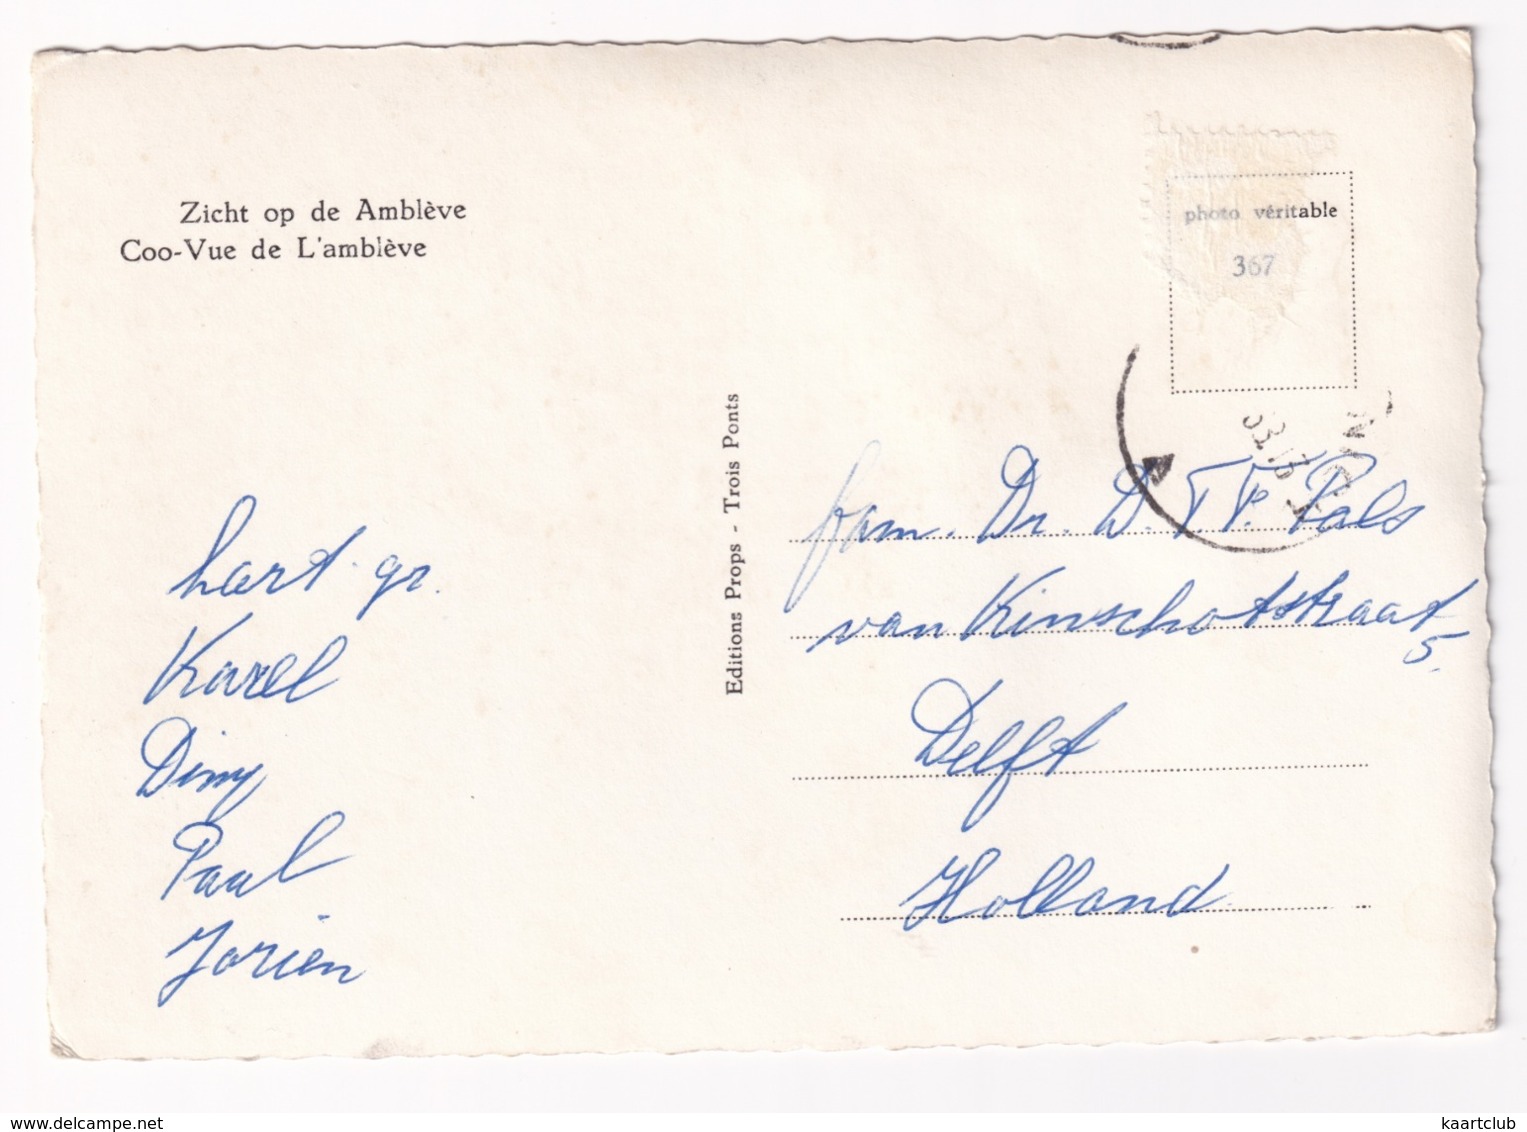 Zicht op de Amblève
Coo-Vue de L'amblève
photo véritable
367
Editions Props - Trois Ponts
hart. gr.
Karel
Diny
Paul
Jorien
fam. Dr. D. Pals
van Kinschotstraat
5.
Delft
Holland
delcampe.net
kaartclub